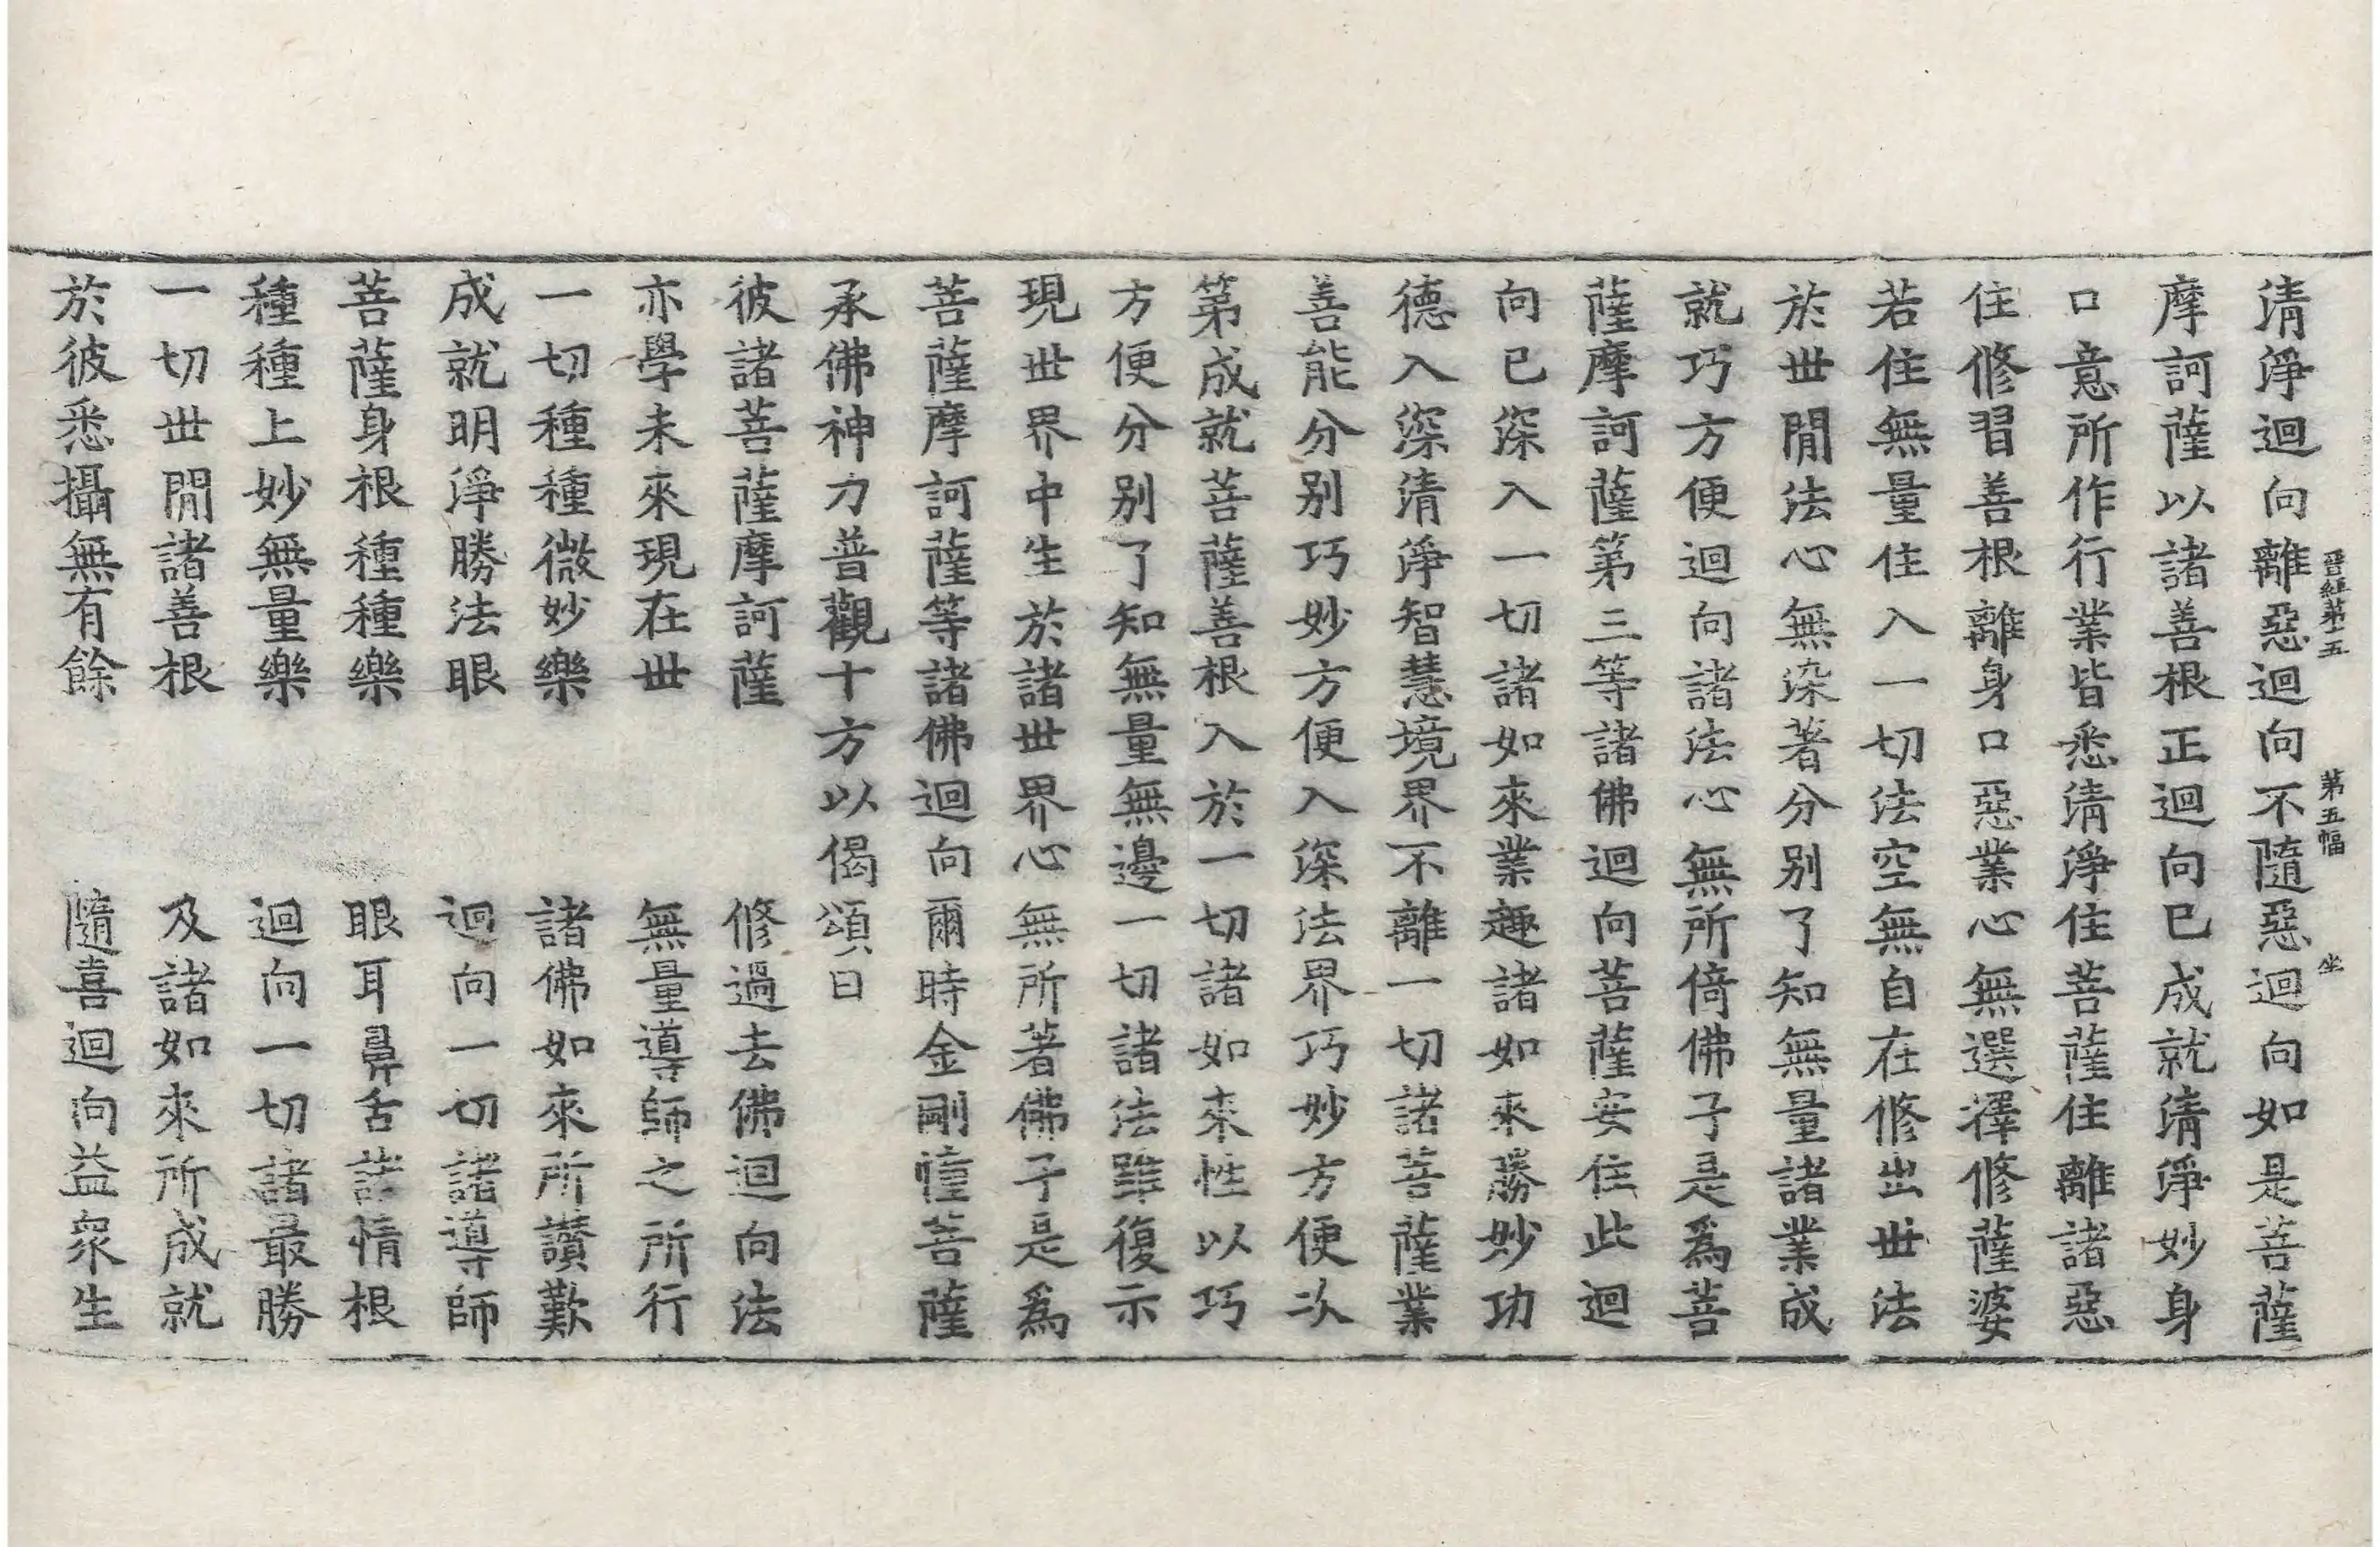 清淨迴向離惡迴向不隨惡迴向如是菩薩
晉經第十五 第五幅 坐
摩訶薩以諸善根正迴向已成就清淨妙身
口意所作行業皆悉清淨住菩薩住離諸惡
住修習善根離身口惡業心無選擇修薩婆
若住無量住入一切法空無自在修出世法
於世閒法心無染著分別了知無量諸業成
就巧方便迴向諸法心無所倚佛子是爲菩
薩摩訶薩第三等諸佛迴向菩薩安住此迴
向已深入一切諸如來業趣諸如來勝妙功
德入深清淨智慧境界不離一切諸菩薩業
善能分別巧妙方便入深法界巧妙方便次
第成就菩薩善根入於一切諸如來性以巧
方便分別了知無量無邊一切諸法雖復示
現世界中生於諸世界心無所著佛子是爲
菩薩摩訶薩等諸佛迴向爾時金剛幢菩薩
承佛神力普觀十方以偈頌曰
彼諸菩薩摩訶薩 修過去佛迴向法
亦學未來現在世 無量導師之所行
一切種種微妙樂 諸佛如來所讃歎
成就明淨勝法眼 迴向一切諸導師
菩薩身根種種樂 眼耳鼻舌諸情根
種種上妙無量樂 迴向一切諸最勝
一切世閒諸善根 及諸如來所成就
於彼悉攝無有餘 隨喜迴向益衆生